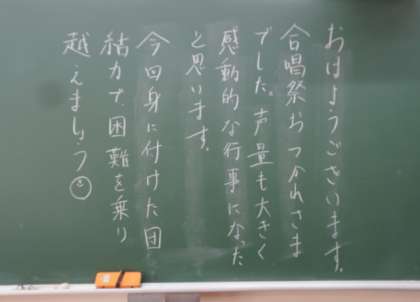 おはようございます。
合唱祭おつかれさま
でした。声量も大きく
感動的な行事になった
と思います。
今回身に付けた団
結力で困難を乗り
越えましょう☺